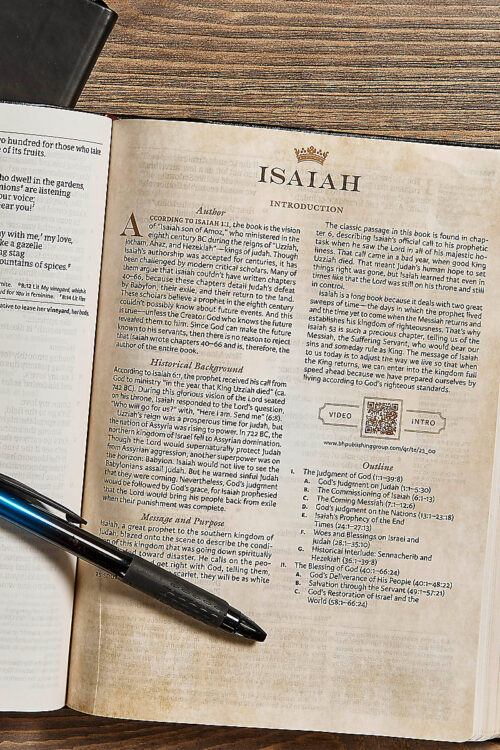 wo hundred for those who take
of its fruits.
ho dwell in the gardens,
nions* are listening
our voice;
ear you!'
y with me,' my love,
ke a gazelle
ng stag
ountains of spices.
8:12 Lit My vineyard, which
8:14 Lit flee
ative to leave her vineyard, her bo
ISAIAH
INTRODUCTION
Author
ACCORDING TO ISAIAH 1:1, the book is the vision
of "Isaiah son of Amoz," who ministered in the
eighth century BC during the reigns of "Uzziah,
Jotham, Ahaz, and Hezekiah"—kings of Judah. Though
Isaiah's authorship was accepted for centuries, it has
been challenged by modern critical scholars. Many of
them argue that Isaiah couldn't have written chapters
40–66, because these chapters detail Judah's defeat
by Babylon, their exile, and their return to the land.
These scholars believe a prophet in the eighth century
couldn't possibly know about future events. And this
is true—unless the Creator God who knows the future
revealed them to him. Since God can make the future
known to his servants, then there is no reason to reject
that Isaiah wrote chapters 40–66 and is, therefore, the
author of the entire book.
Historical Background
According to Isaiah 6:1, the prophet received his call from
God to ministry "in the year that King Uzziah died" (ca.
742 BC). During this glorious vision of the Lord seated
on his throne, Isaiah responded to the Lord's question,
"Who will go for us?" with, "Here I am. Send me" (6:8).
Uzziah's reign was a prosperous time for Judah, but
the nation of Assyria was rising to power. In 722 BC, the
northern kingdom of Israel fell to Assyrian domination.
Though the Lord would supernaturally protect Judah
from Assyrian aggression, another superpower was on
the horizon: Babylon. Isaiah would not live to see the
Babylonians assail Judah. But he warned sinful Judah
that they were coming. Nevertheless, God's judgment
would be followed by God's grace, for Isaiah prophesied
that the Lord would bring his people back from exile
when their punishment was complete.
Message and Purpose
Isaiah, a great prophet to the southern kingdom of
Judah, blazed onto the scene to describe the condi-
of this kingdom that was going down spiritually
toward disaster. He calls on the peo-
get right with God, telling them,
scarlet, they will be as white
The classic passage in this book is found in chap-
ter 6, describing Isaiah's official call to his prophetic
task when he saw the Lord in all of his majestic ho-
liness. That call came in a bad year, when good King
Uzziah died. That meant Judah's human hope to set
things right was gone, but Isaiah learned that even in
times like that the Lord was still on his throne and still
in control.
Isaiah is a long book because it deals with two great
sweeps of time—the days in which the prophet lived
and the time yet to come when the Messiah returns and
establishes his kingdom of righteousness. That's why
Isaiah 53 is such a precious chapter, telling us of the
Messiah, the Suffering Servant, who would bear our
sins and someday rule as King. The message of Isaiah
to us today is to adjust the way we live so that when
the King returns, we can enter into the kingdom full
speed ahead because we have prepared ourselves by
living according to God's righteous standards.
VIDEO INTRO
www.bhpublishinggroup.com/qr/te/23_00
Outline
I. The Judgment of God (1:1–39:8)
A. God's Judgment on Judah (1:1–5:30)
B. The Commissioning of Isaiah (6:1–13)
C. The Coming Messiah (7:1–12:6)
D. God's Judgment on the Nations (13:1–23:18)
E. Isaiah's Prophecy of the End
Times (24:1–27:13)
F. Woes and Blessings on Israel and
Judah (28:1–35:10)
G. Historical Interlude: Sennacherib and
Hezekiah (36:1–39:8)
II. The Blessing of God (40:1–66:24)
A. God's Deliverance of His People (40:1–48:22)
B. Salvation through the Servant (49:1–57:21)
C. God's Restoration of Israel and the
World (58:1–66:24)